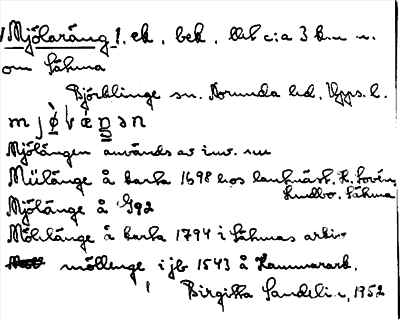 Mjölaräng 1, ek. bek. bbt c:a 3 km n.
om Såhma
Björklinge sn. Norunda hd. Upps. l.
Mjölängen används av inv. nu
Mülänge å karta 1698 hos lantmäst. K. Lovén,
Lundbo, Såhma
Mjölänge å G92
Mölnlänge å karta 1794 i Såhmas arkiv
möllenge i jb 1543 å Kammarark.
Birgitta Sandelin, 1952